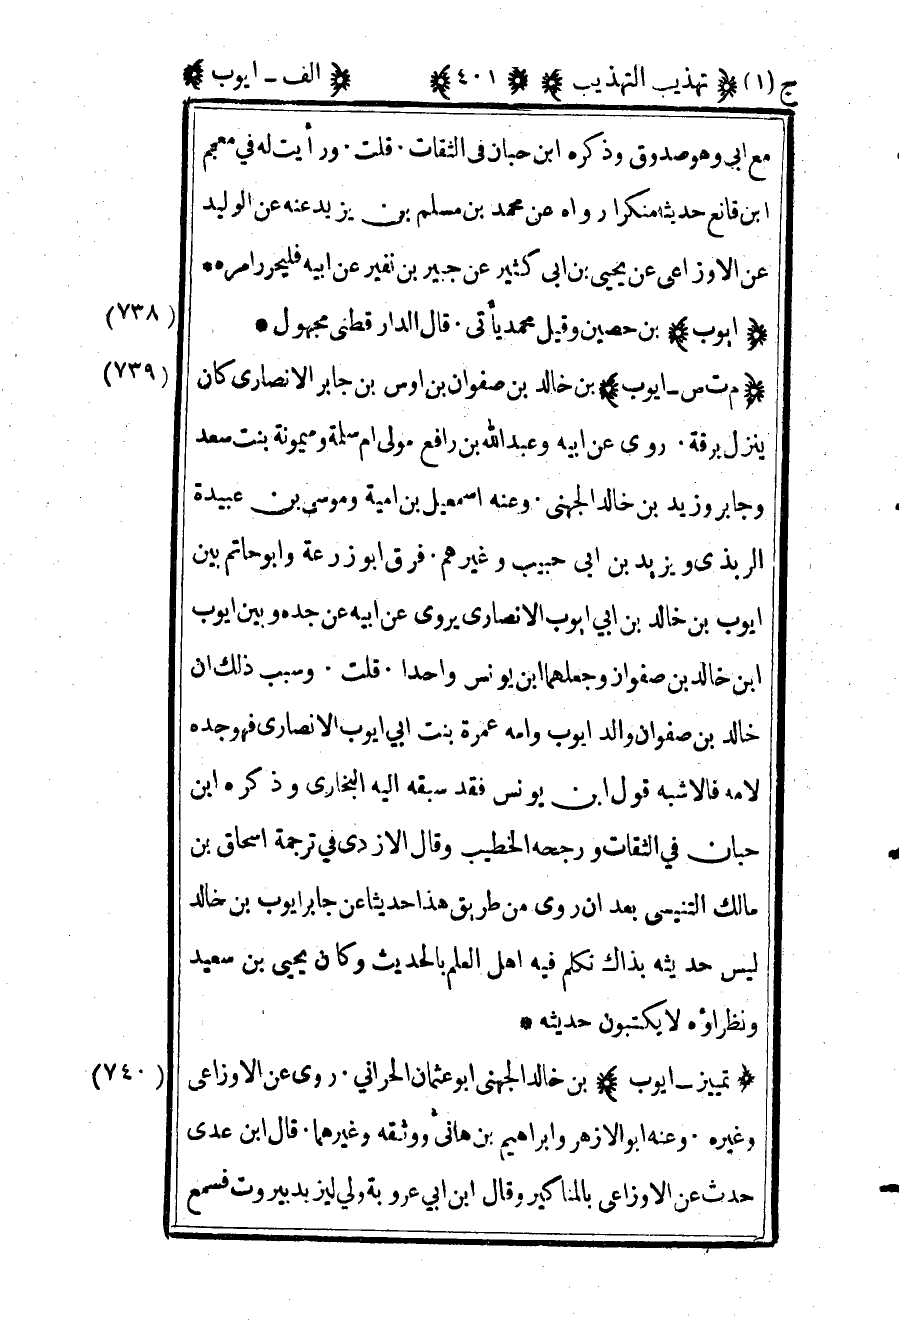 ج (١) ﴿ تهذيب التهذيب ﴾ * ٤٠١ ﴾ ﴿ الف ـ ايوب ﴾
مع ابى وهو صدوق وذكره ابن حبان فى الثقات · قلت · ورأيت له في معجم
ابن قانع حديثا منكرا رواه عن محمد بن مسلم بن يزيد عنه عن الوليد
عن الاوزاعى عن يحيى بن ابى كثير عن جبير بن نفير عن ابيه فليحرر امره *
﴿ ايوب ﴾ بن حصين وقيل محمد يأتى · قال الدار قطنى مجهول * (٧٣٨)
﴿ م ت س ـ ايوب ﴾ بن خالد بن صفوان بن اوس بن جابر الانصارى كان (٧٣٩)
ينزل برقة · روى عن ابيه وعبد الله بن رافع مولى ام سلمة وميمونة بنت سعد
وجابر وزيد بن خالد الجهنى · وعنه اسمعيل بن امية وموسى بن عبيدة
الربذى ويزيد بن ابى حبيب وغيرهم · فرق ابو زرعة وابو حاتم بين
ايوب بن خالد بن ابي ايوب الانصارى يروى عن ابيه عن جده وبين ايوب
ابن خالد بن صفوان وجعلهما ابن يونس واحدا · قلت · وسبب ذلك ان
خالد بن صفوان والد ايوب وامه عمرة بنت ابي ايوب الانصارى فهو جده
لامه فالاشبه قول ابن يونس فقد سبقه اليه البخارى وذكره ابن
حبان في الثقات ورجحه الخطيب وقال الازدى في ترجمة اسحاق بن
مالك التنيسى بعد ان روى من طريق هذا حديثا عن جابر ايوب بن خالد
ليس حديثه بذاك تكلم فيه اهل العلم بالحديث وكان يحيى بن سعيد
ونظراؤه لا يكتبون حديثه *
﴿ تمييز ـ ايوب ﴾ بن خالد الجهنى ابو عثمان الحراني · روى عن الاوزاعى (٧٤٠)
وغيره · وعنه ابو الازهر وابراهيم بن هانىٔ ووثقه وغيرهما · قال ابن عدى
حدث عن الاوزاعى بالمناكير وقال ابن ابي عروبة ولي ليزيد بيروت فسمع